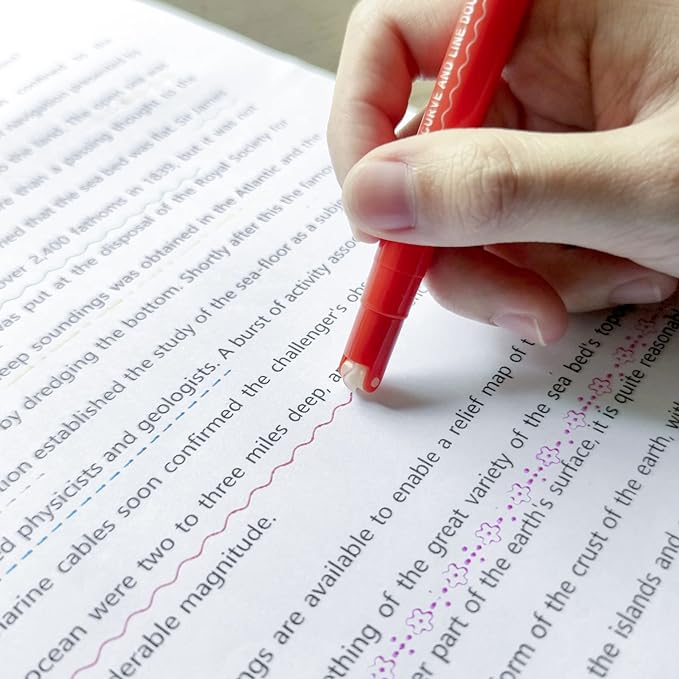 CURVE AND LINE DOU
navigation presented by
than a passing thought to the
ned that the sea bed was flat. Sir James
over 2,400 fathoms in 1839, but it was not
was put at the disposal of the Royal Society for
deep soundings was obtained in the Atlantic and the
by dredging the bottom. Shortly after this the famous
tion established the study of the sea-floor as a subj
ed physicists and geologists. A burst of activity assoc
marine cables soon confirmed the challenger's obs
ocean were two to three miles deep, a
derable magnitude.
ngs are available to enable a relief map of t
othing of the great variety of the sea bed's topo
er part of the earth's surface, it is quite reasonabl
orm of the crust of the earth, with
the islands and